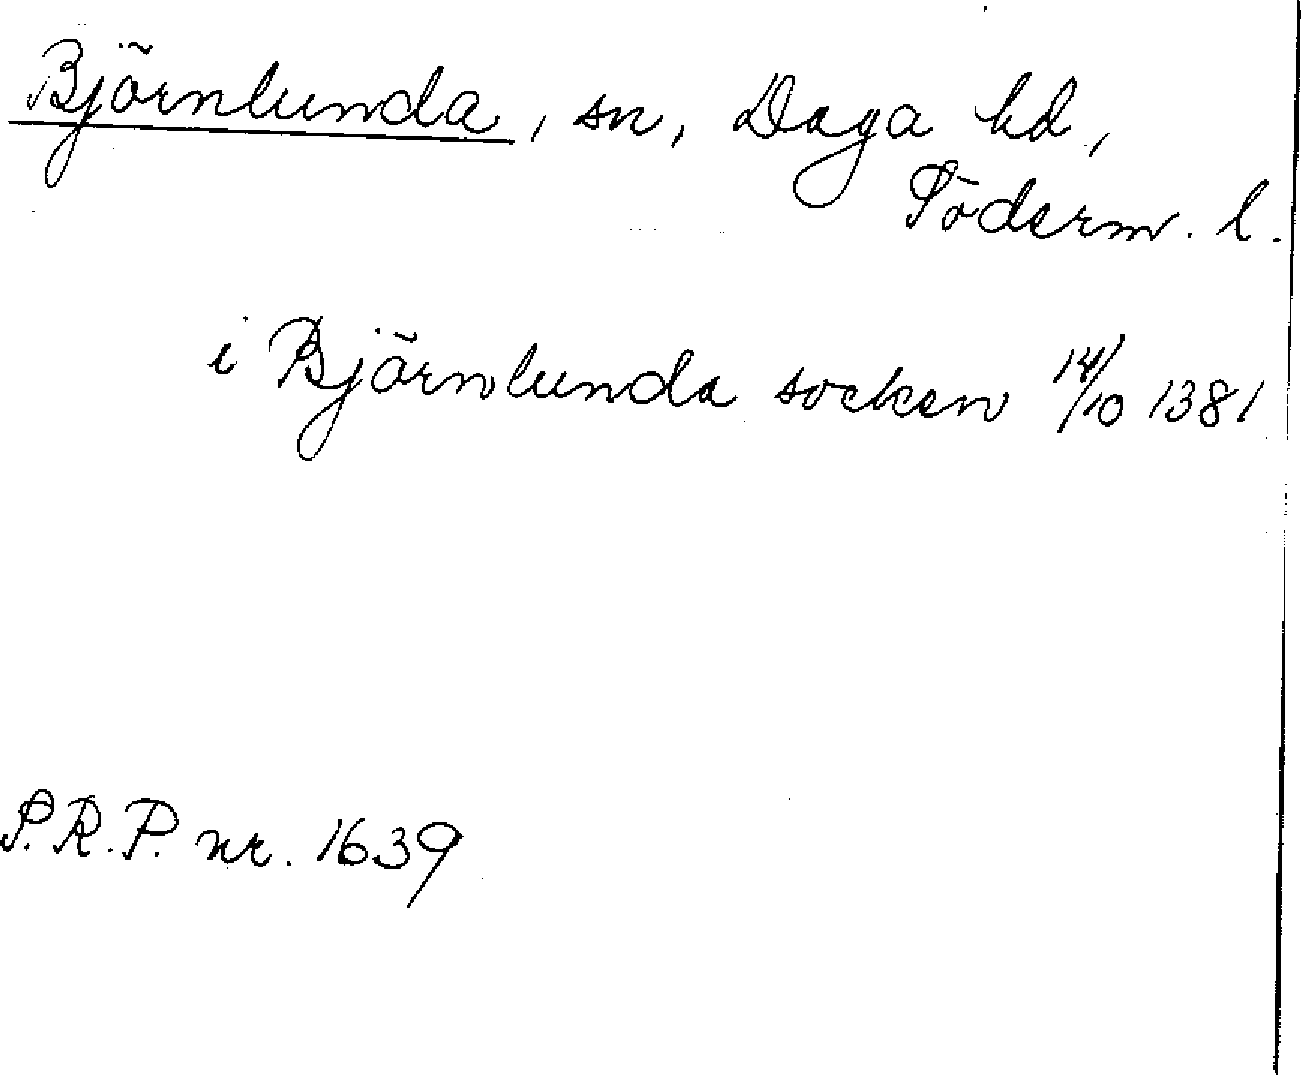 Björnlunda, sn, Daga hd,
Söderm. l.
i Björnlunda socken 14/10 1381
S.R.P. nr. 1639